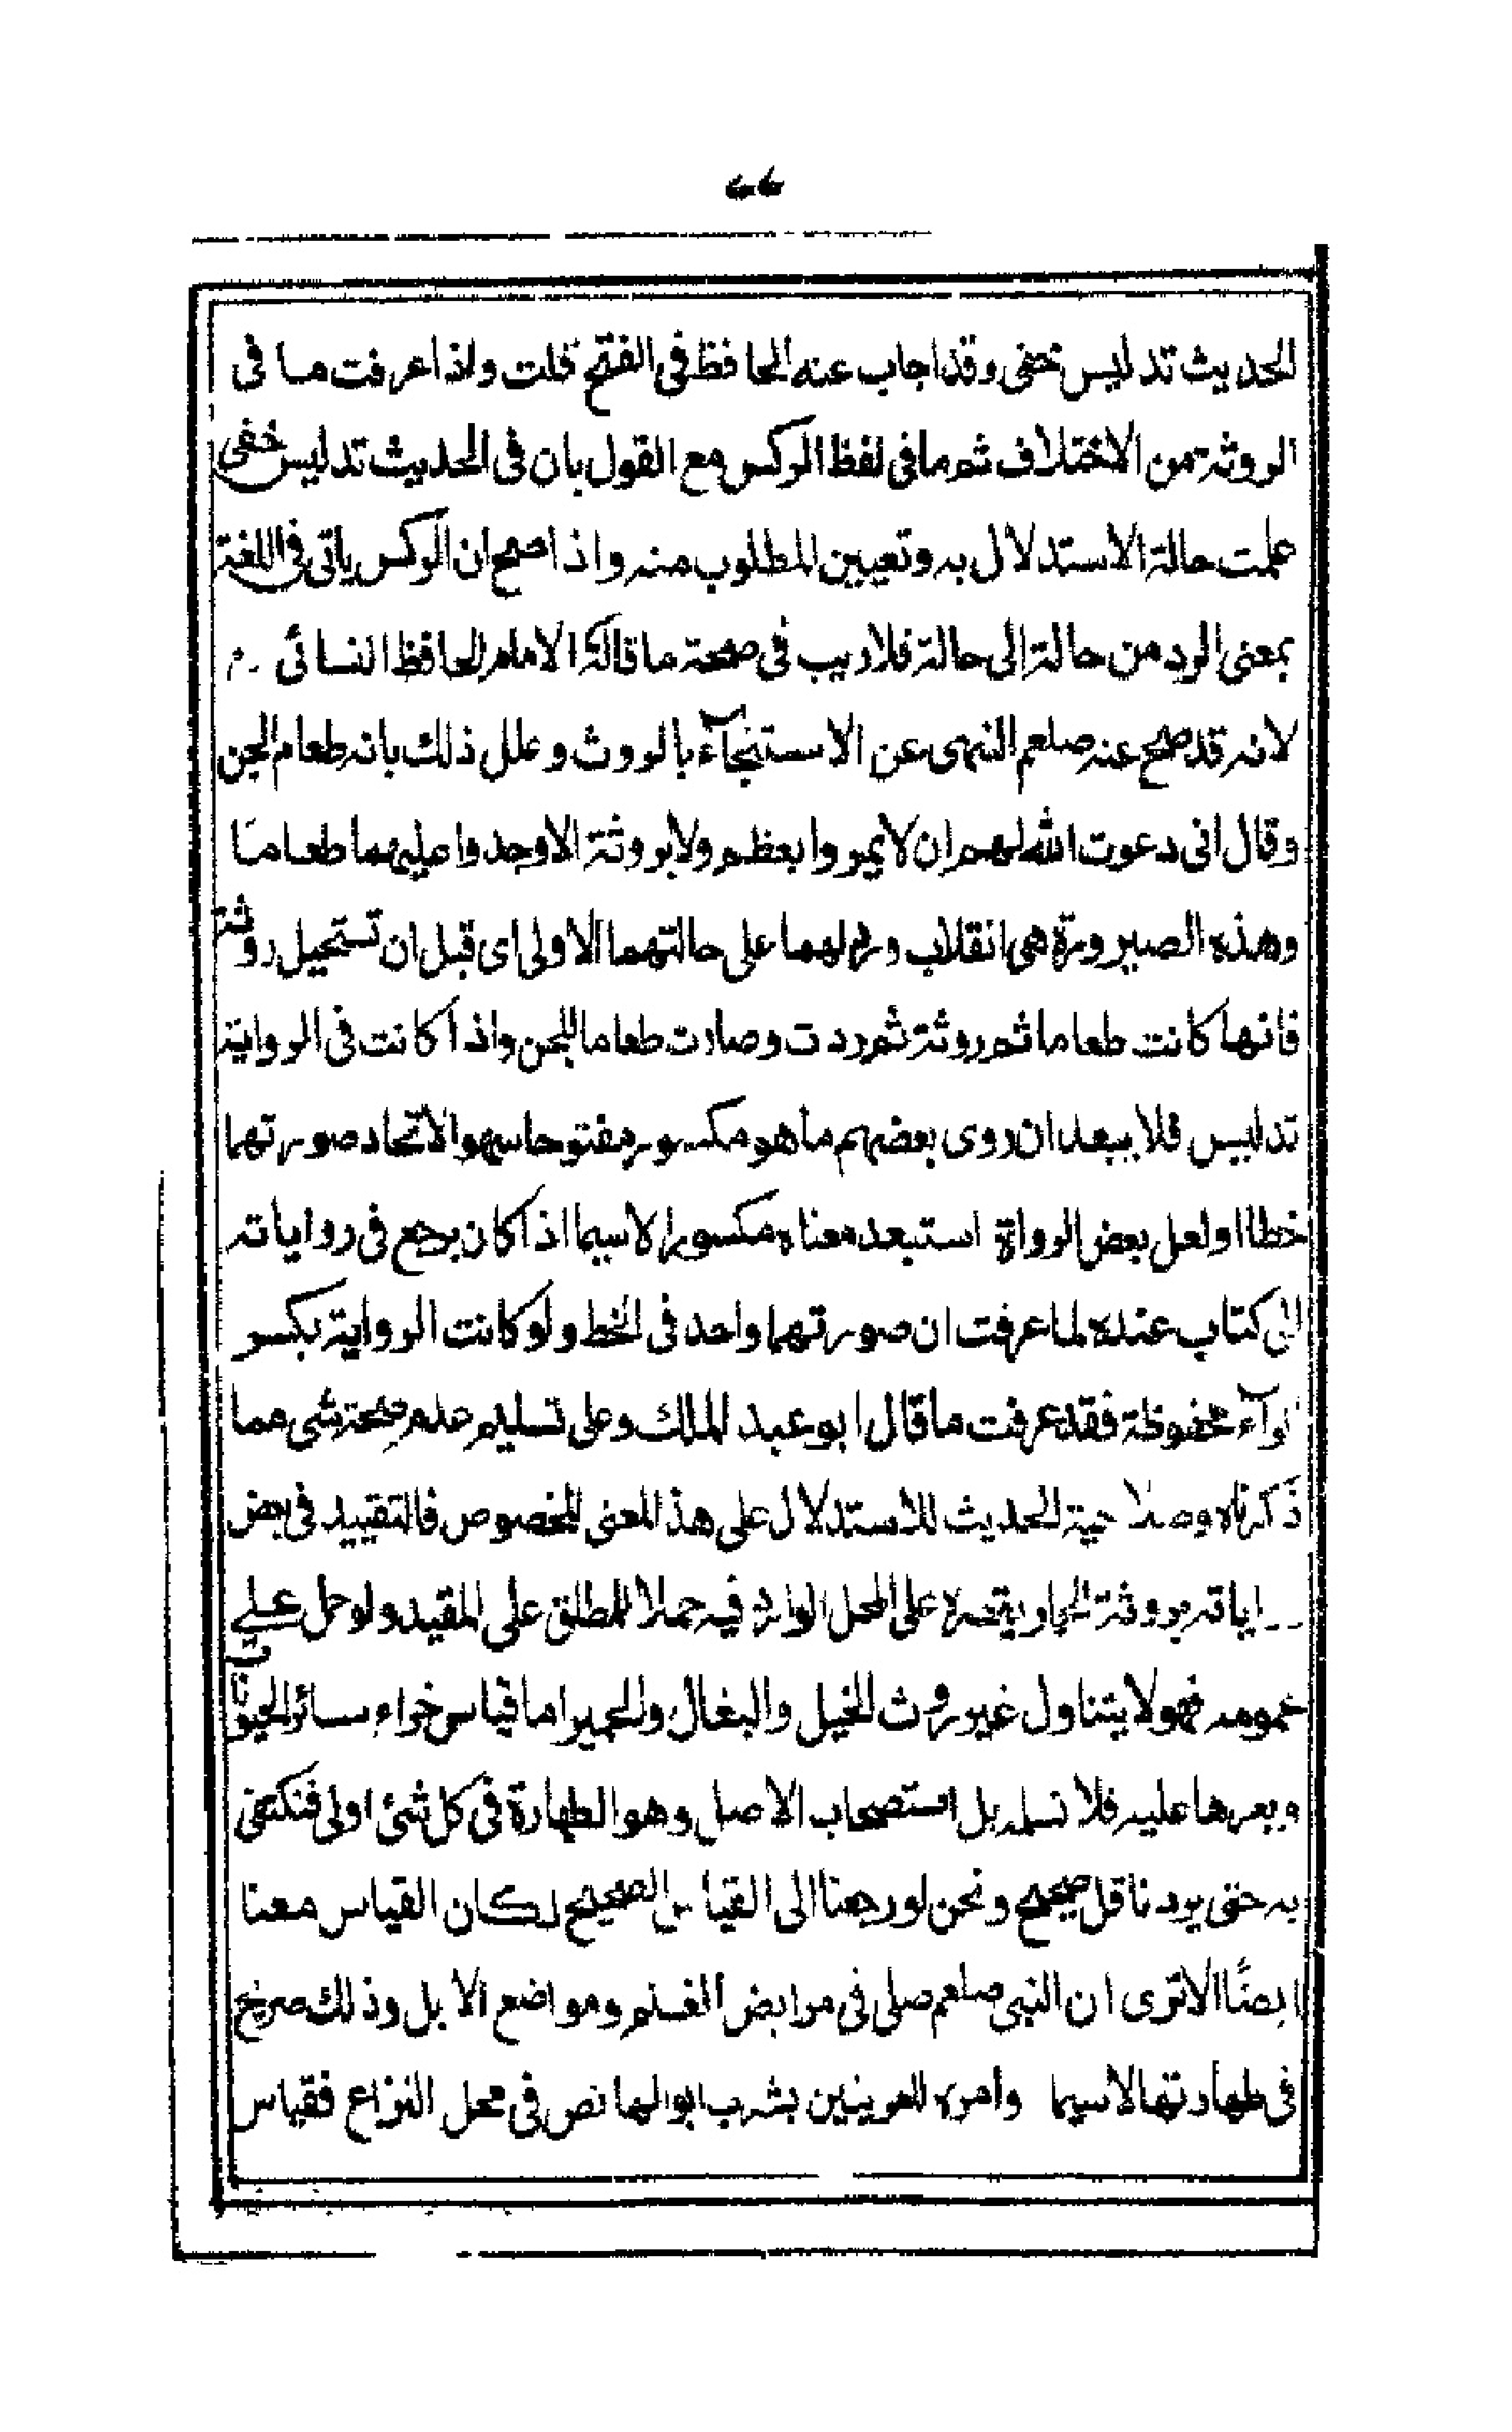 ٧٧
الحديث تدليس خفى وقد اجاب عنه الحافظ فى الفتح قلت واذا عرفت ما فى
الروثة من الاختلاف ثم ما فى لفظ الركس مع القول بان فى الحديث تدليس خفى
علمت حالة الاستدلال به وتعيين المطلوب منه واذا صح ان الركس ياتى فى اللغة
بمعنى الرد من حالة الى حالة فلا ريب فى صحة ما قاله الامام الحافظ النسائى رح
لانه قد صح عنه صلعم النهى عن الاستنجآء بالروث وعلل ذلك بانه طعام الجن
وقال انى دعوت الله لهم ان لا يمروا بعظم ولا بروثة الا وجدوا عليهما طعاما
وهذه الصيرورة هى انقلاب ورد لهما على حالتهما الاولى اى قبل ان تستحيل روثة
فانها كانت طعاما ثم روثة ثم ردت وصارت طعاما للجن واذا كانت فى الرواية
تدليس فلا يبعد ان روى بعضهم ما هو مكسور مفتوحا سهوا لاتحاد صورتهما
خطا او لعل بعض الرواة استبعد معناه مكسورا لا سيما اذا كان يرجع فى رواياته
الى كتاب عنده لما عرفت ان صورتهما واحد فى الخط ولو كانت الرواية بكسر
الرآء محفوظة فقد عرفت ما قال ابو عبد الملك وعلى تسليم عدم صحة شى مما
ذكرناه وصلاحية الحديث للاستدلال على هذا المعنى المخصوص فالتقييد فى بعض
رواياته بروثة الحمار يقصره على المحل الوارد فيه حملا للمطلق على المقيد ولو حمل على
عمومه فهو لا يتناول غير روث الخيل والبغال والحمير اما قياس خراء سائر الحيوانات
وبعرها عليه فلا نسلم بل استصحاب الاصل وهو الطهارة فى كل شئ اولى فنكتفى
به حتى يرد ناقل صحيح ونحن لو رجعنا الى القياس الصحيح لكان القياس معنا
ايضًا الا ترى ان النبى صلعم صلى فى مرابض الغنم ومواضع الابل وذلك صريح
فى طهارتها لا سيما وامره للعرينين بشرب ابوالها نص فى محل النزاع فقياس